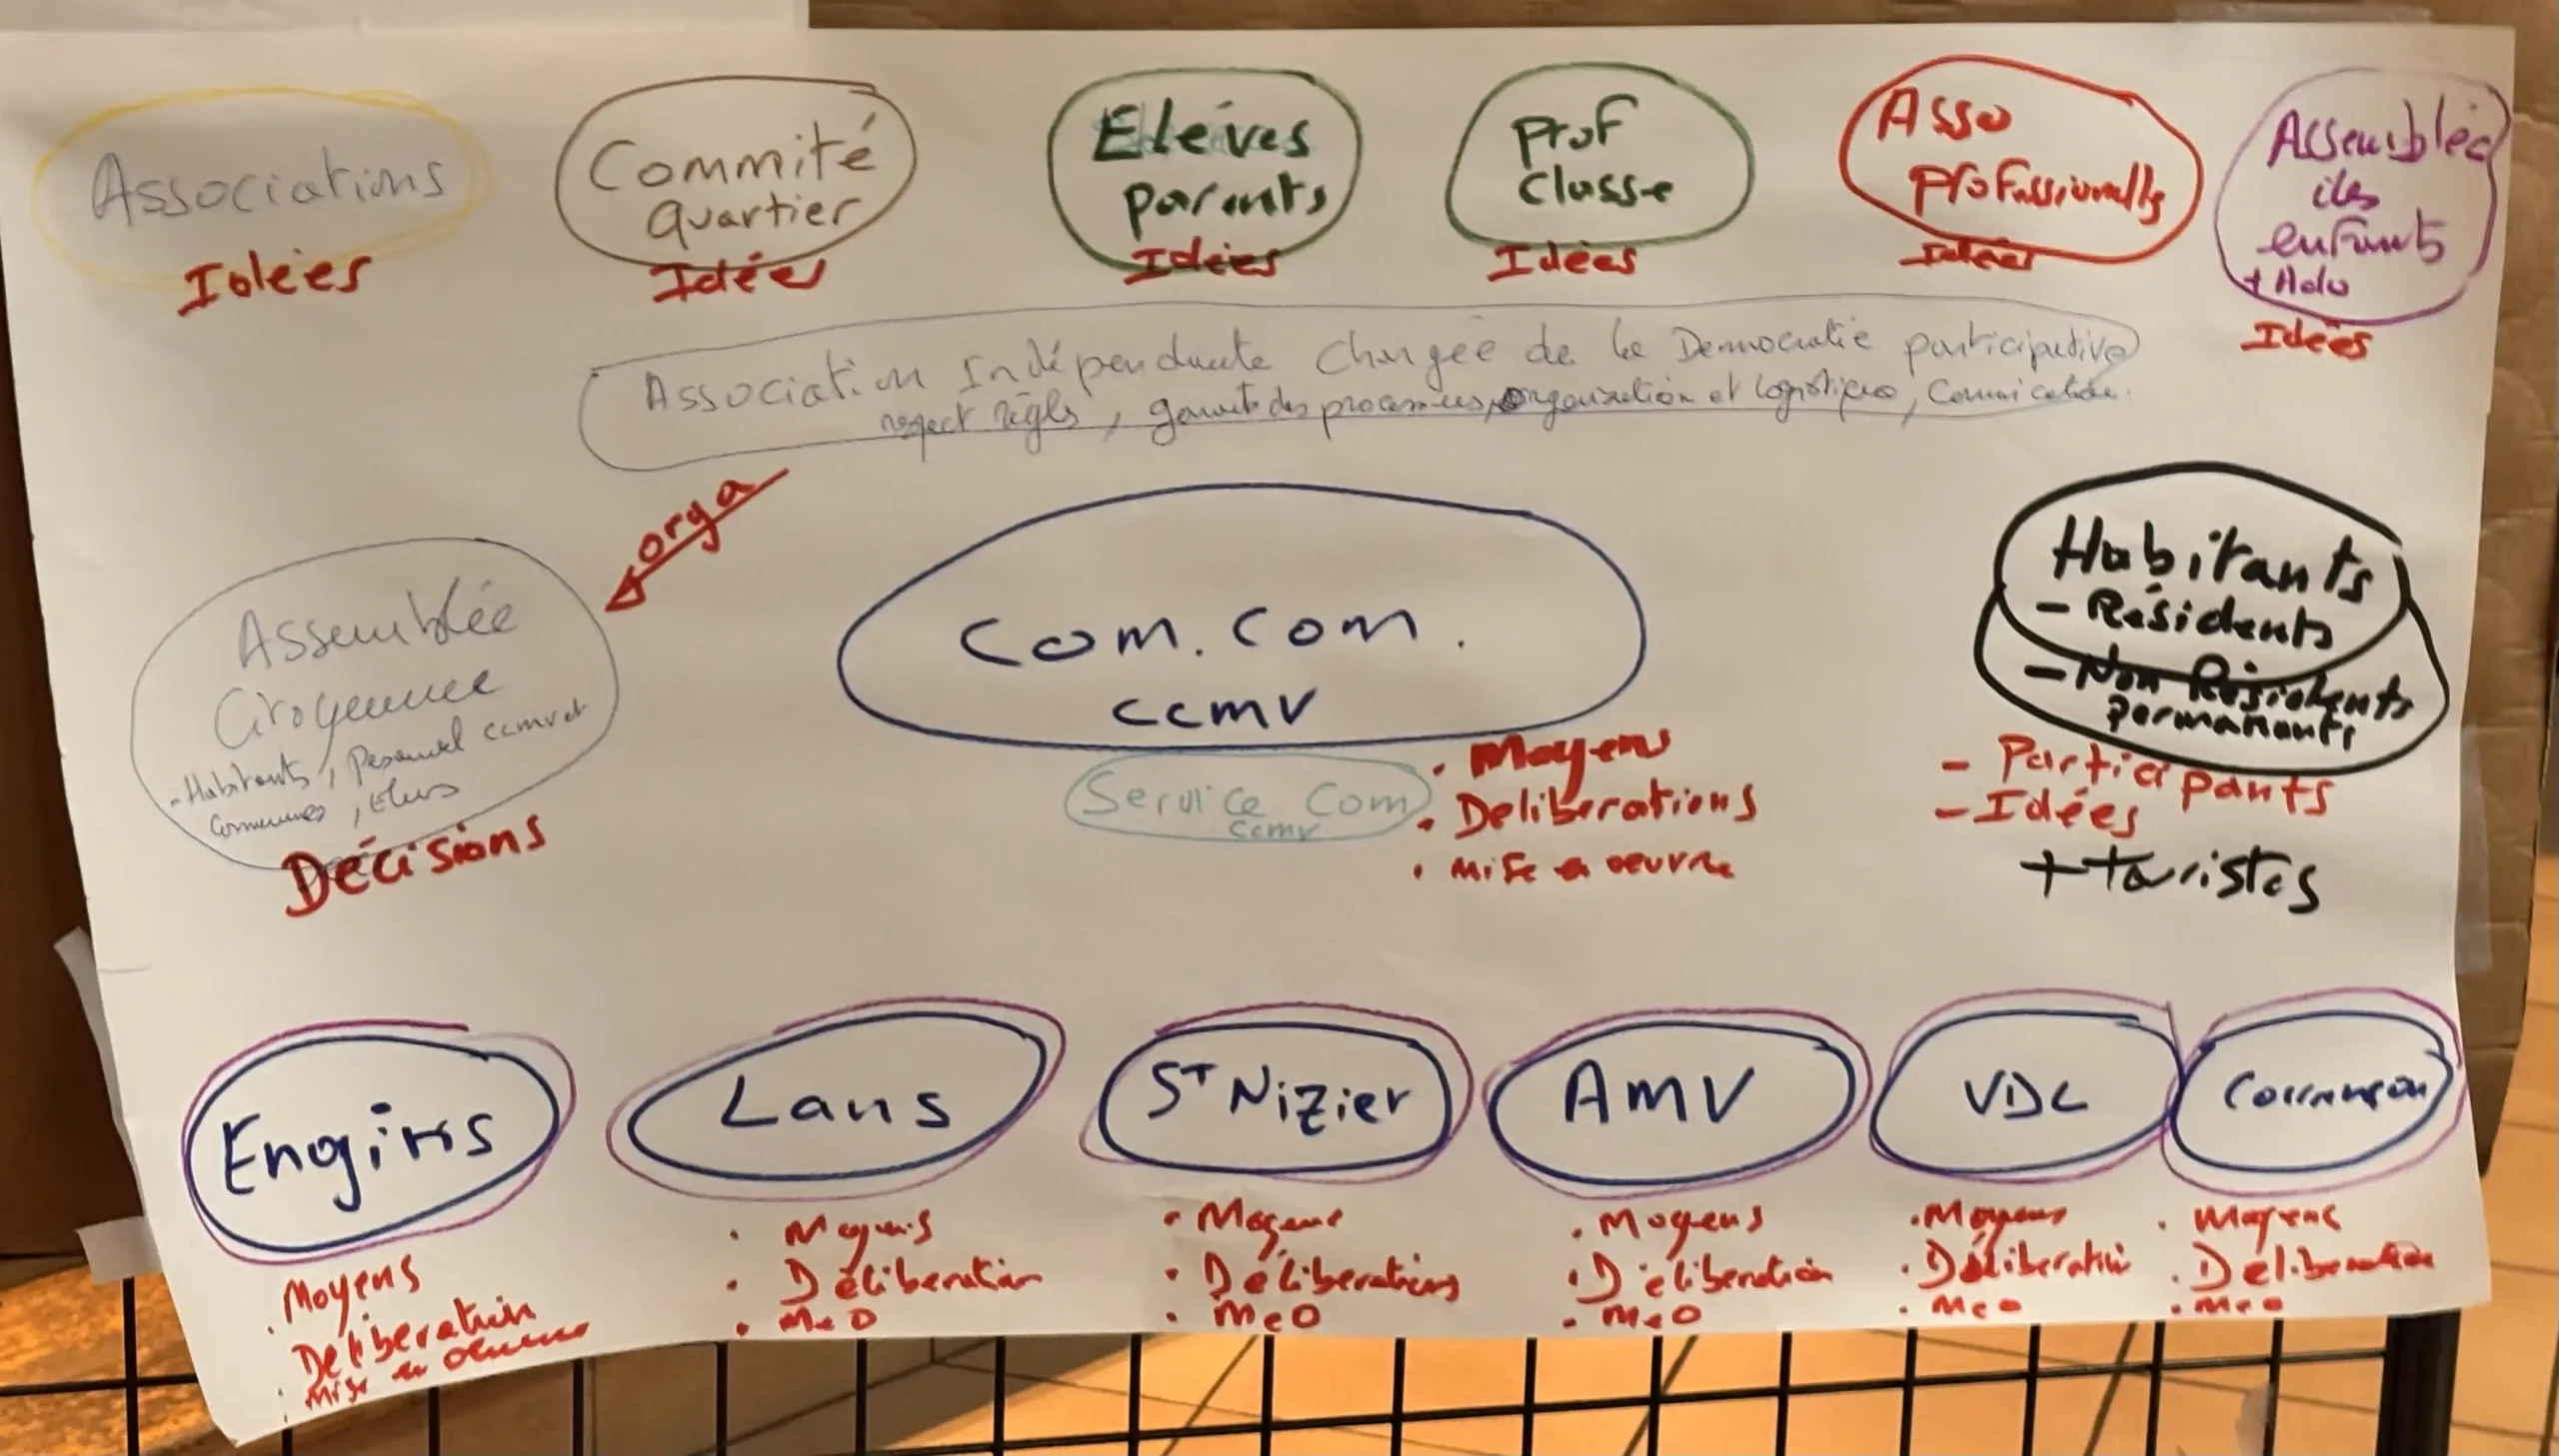 Associations
Idées
Commité
quartier
Idées
Eléves
parents
Idées
Prof
Classe
Idées
Asso
professionnelles
Idées
Assemblée
des
enfants
+ Ado
Idées
Association Indépendante Chargée de la Democratie participative
respect règles, garant des processus, organisation et logistique, Comunication.
orga
Assemblée
Citoyenne
- Habitants, Personnel ccmv et
Communes, Elus
Décisions
Com. Com.
ccmv
Service Com
ccmv
• Moyens
• Deliberations
• Mise en oeuvre
Habitants
- Résidents
- Non Résidents
permanants
- Participants
- Idées
+ touristes
Engins
• Moyens
• Délibération
• Mise en oeuvre
Lans
• Moyens
• Déliberation
• MeO
St Nizier
• Moyens
• Déliberations
• MeO
AMV
• Moyens
• Déliberation
• MeO
VDL
• Moyens
• Déliberation
• MeO
Corrençon
• Moyens
• Déliberation
• MeO